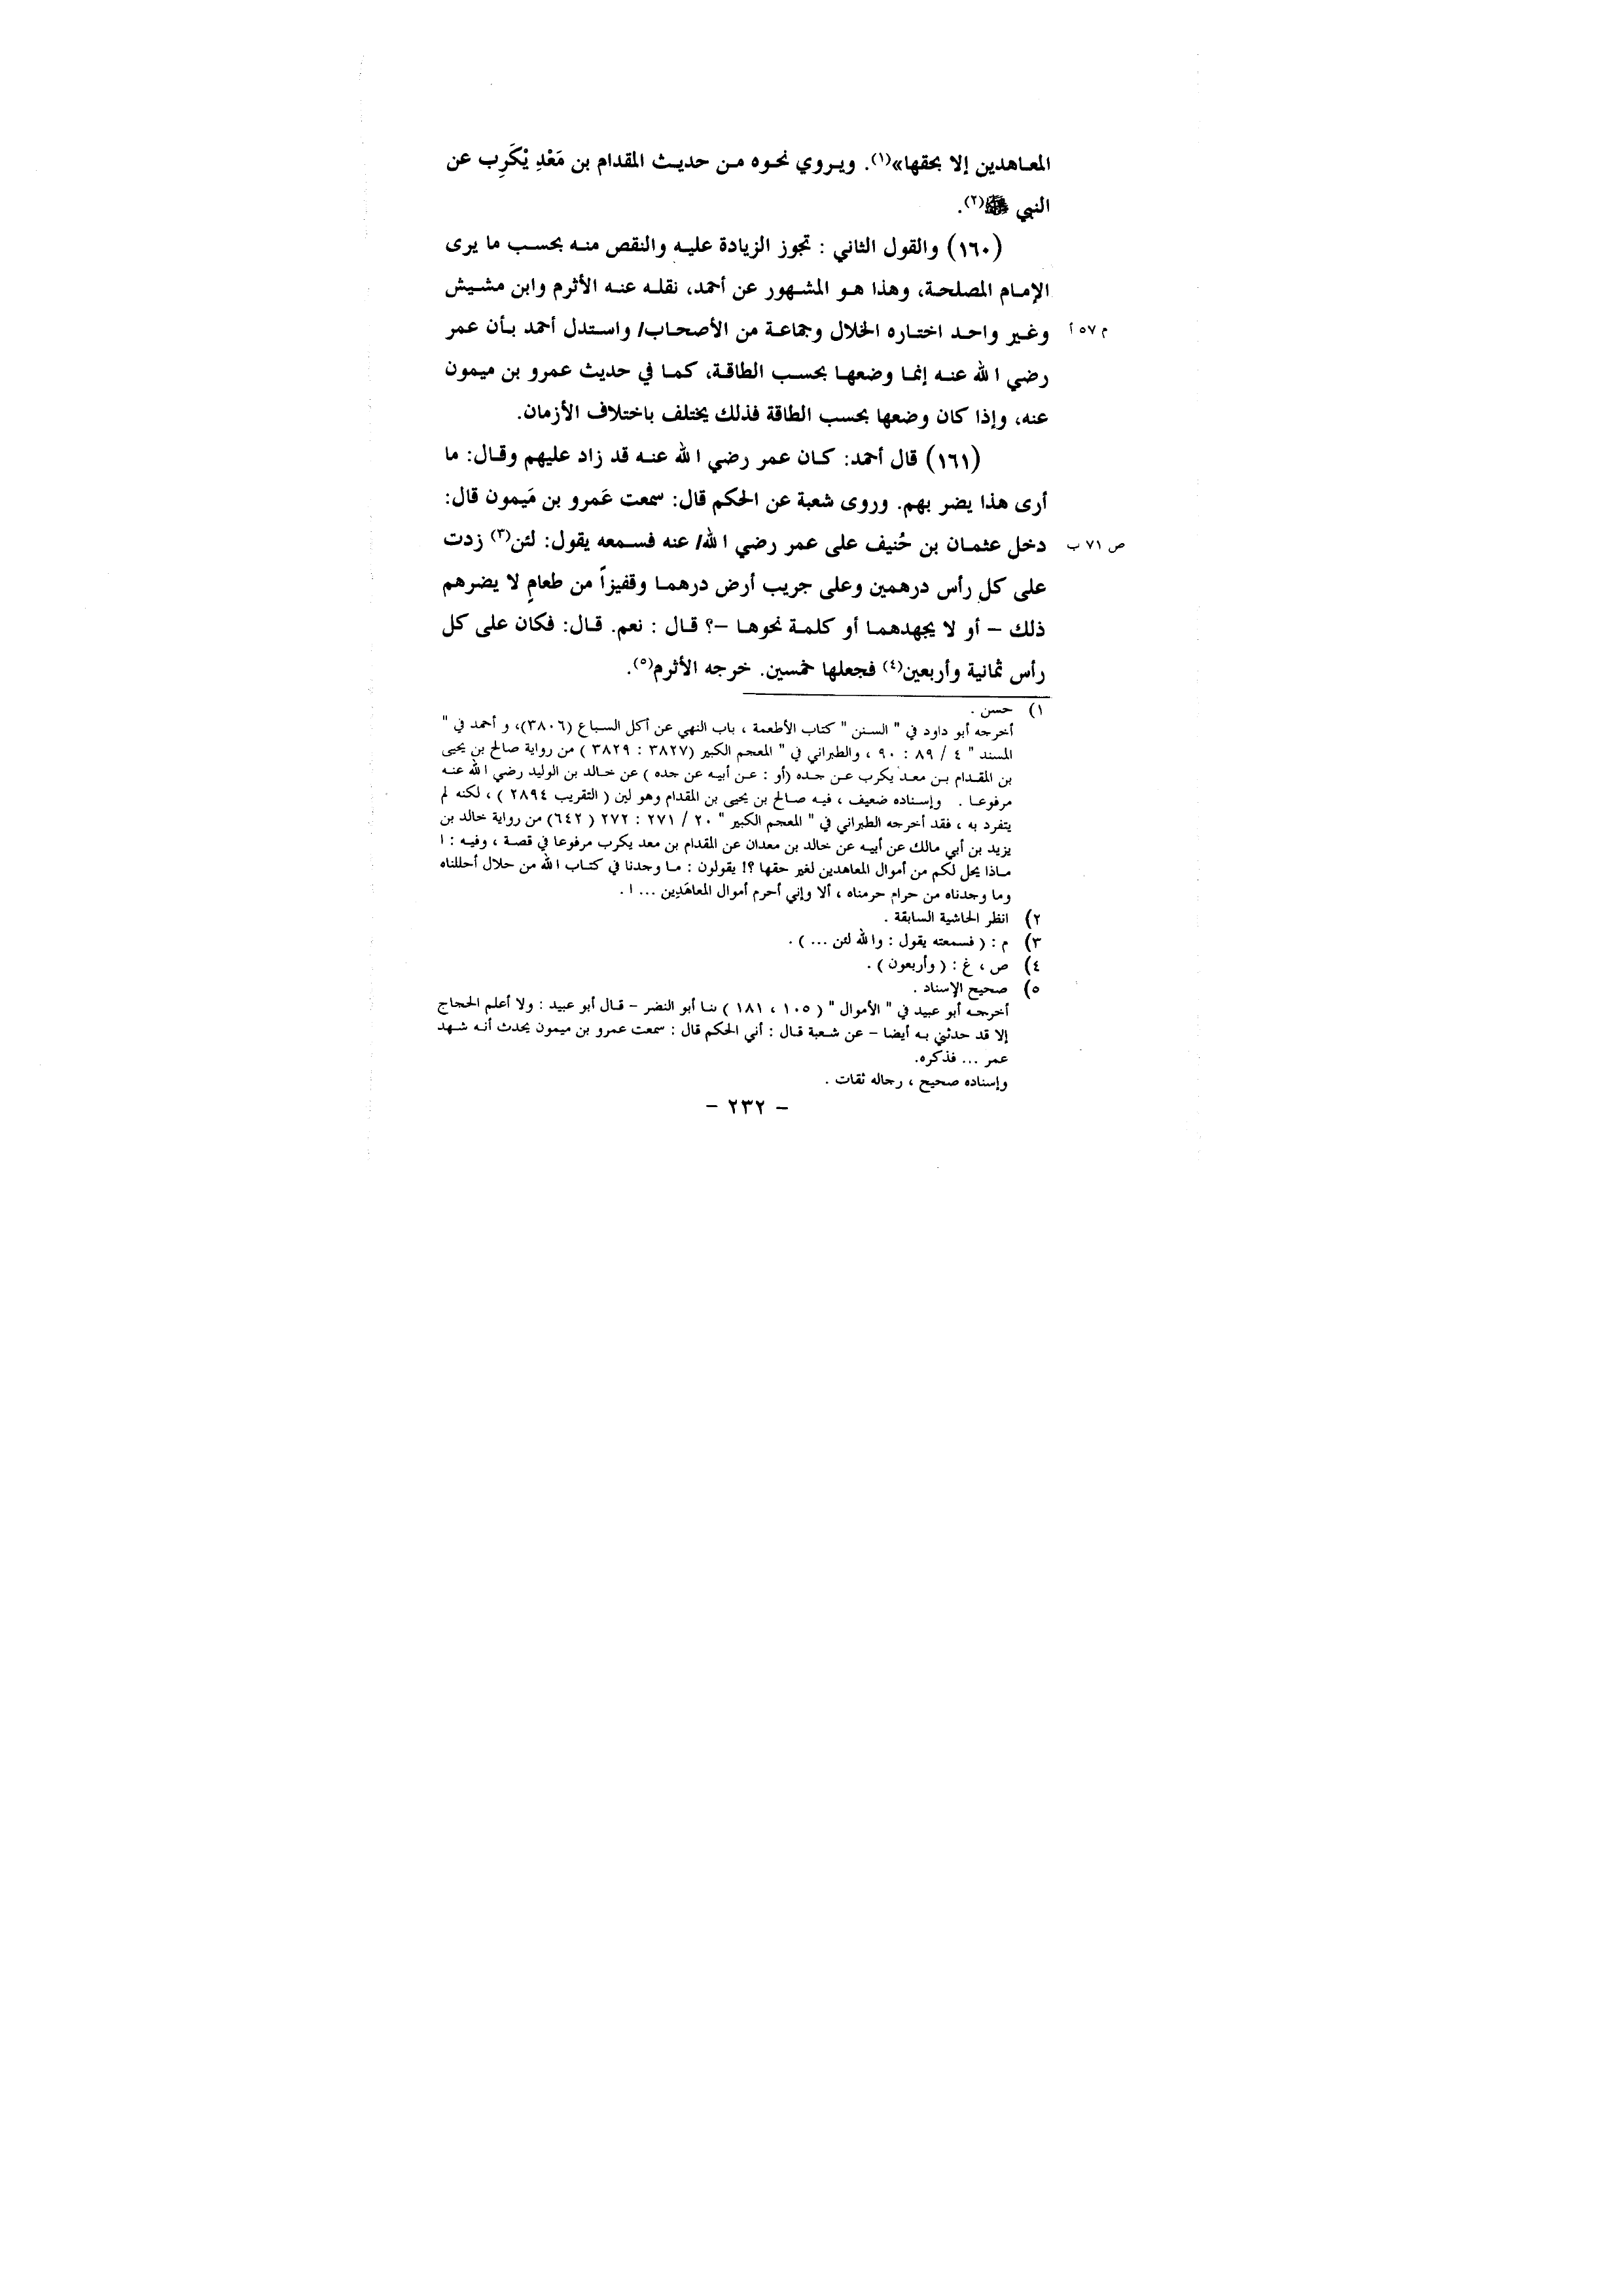 المعاهدين إلا بحقها»(١). ويروي نحوه من حديث المقدام بن مَعْدِ يْكَرِب عن
النبي ﷺ(٢).
(١٦٠) والقول الثاني : تجوز الزيادة عليه والنقص منه بحسب ما يرى
الإمام المصلحة، وهذا هو المشهور عن أحمد، نقله عنه الأثرم وابن مشيش
وغير واحد اختاره الخلال وجماعة من الأصحاب/ واستدل أحمد بأن عمر
م ٥٧ أ
رضي الله عنه إنما وضعها بحسب الطاقة، كما في حديث عمرو بن ميمون
عنه، وإذا كان وضعها بحسب الطاقة فذلك يختلف باختلاف الأزمان.
(١٦١) قال أحمد: كان عمر رضي الله عنه قد زاد عليهم وقال: ما
أرى هذا يضر بهم. وروى شعبة عن الحكم قال: سمعت عَمرو بن مَيمون قال:
دخل عثمان بن حُنيف على عمر رضي الله/ عنه فسمعه يقول: لئن(٣) زدت
ص ٧١ ب
على كل رأس درهمين وعلى جريب أرض درهما وقفيزاً من طعامٍ لا يضرهم
ذلك – أو لا يجهدهما أو كلمة نحوها –؟ قال : نعم. قال: فكان على كل
رأس ثمانية وأربعين(٤) فجعلها خمسين. خرجه الأثرم(٥).
١) حسن .
أخرجه أبو داود في " السنن " كتاب الأطعمة ، باب النهي عن أكل السباع (٣٨٠٦)، و أحمد في "
المسند " ٤ / ٨٩ : ٩٠ ، والطبراني في " المعجم الكبير (٣٨٢٧ : ٣٨٢٩ ) من رواية صالح بن يحيى
بن المقدام بن معد يكرب عن جده (أو : عن أبيه عن جده ) عن خالد بن الوليد رضي الله عنه
مرفوعا . وإسناده ضعيف ، فيه صالح بن يحيى بن المقدام وهو لين ( التقريب ٢٨٩٤ ) ، لكنه لم
يتفرد به ، فقد أخرجه الطبراني في " المعجم الكبير " ٢٠ / ٢٧١ : ٢٧٢ ( ٦٤٢) من رواية خالد بن
يزيد بن أبي مالك عن أبيه عن خالد بن معدان عن المقدام بن معد يكرب مرفوعا في قصة ، وفيه : ا
ماذا يحل لكم من أموال المعاهدين لغير حقها ؟! يقولون : ما وجدنا في كتاب الله من حلال أحللناه
وما وجدناه من حرام حرمناه ، ألا وإني أحرم أموال المعاهَدِين ... ا .
٢) انظر الحاشية السابقة .
٣) م : ( فسمعته يقول : والله لئن ... ) .
٤) ص ، غ : ( وأربعون ) .
٥) صحيح الإسناد .
أخرجه أبو عبيد في " الأموال " ( ١٠٥ ، ١٨١ ) ثنا أبو النضر – قال أبو عبيد : ولا أعلم الحجاج
إلا قد حدثني به أيضا – عن شعبة قال : أني الحكم قال : سمعت عمرو بن ميمون يحدث أنه شهد
عمر ... فذكره.
وإسناده صحيح ، رجاله ثقات .
– ٢٣٢ –